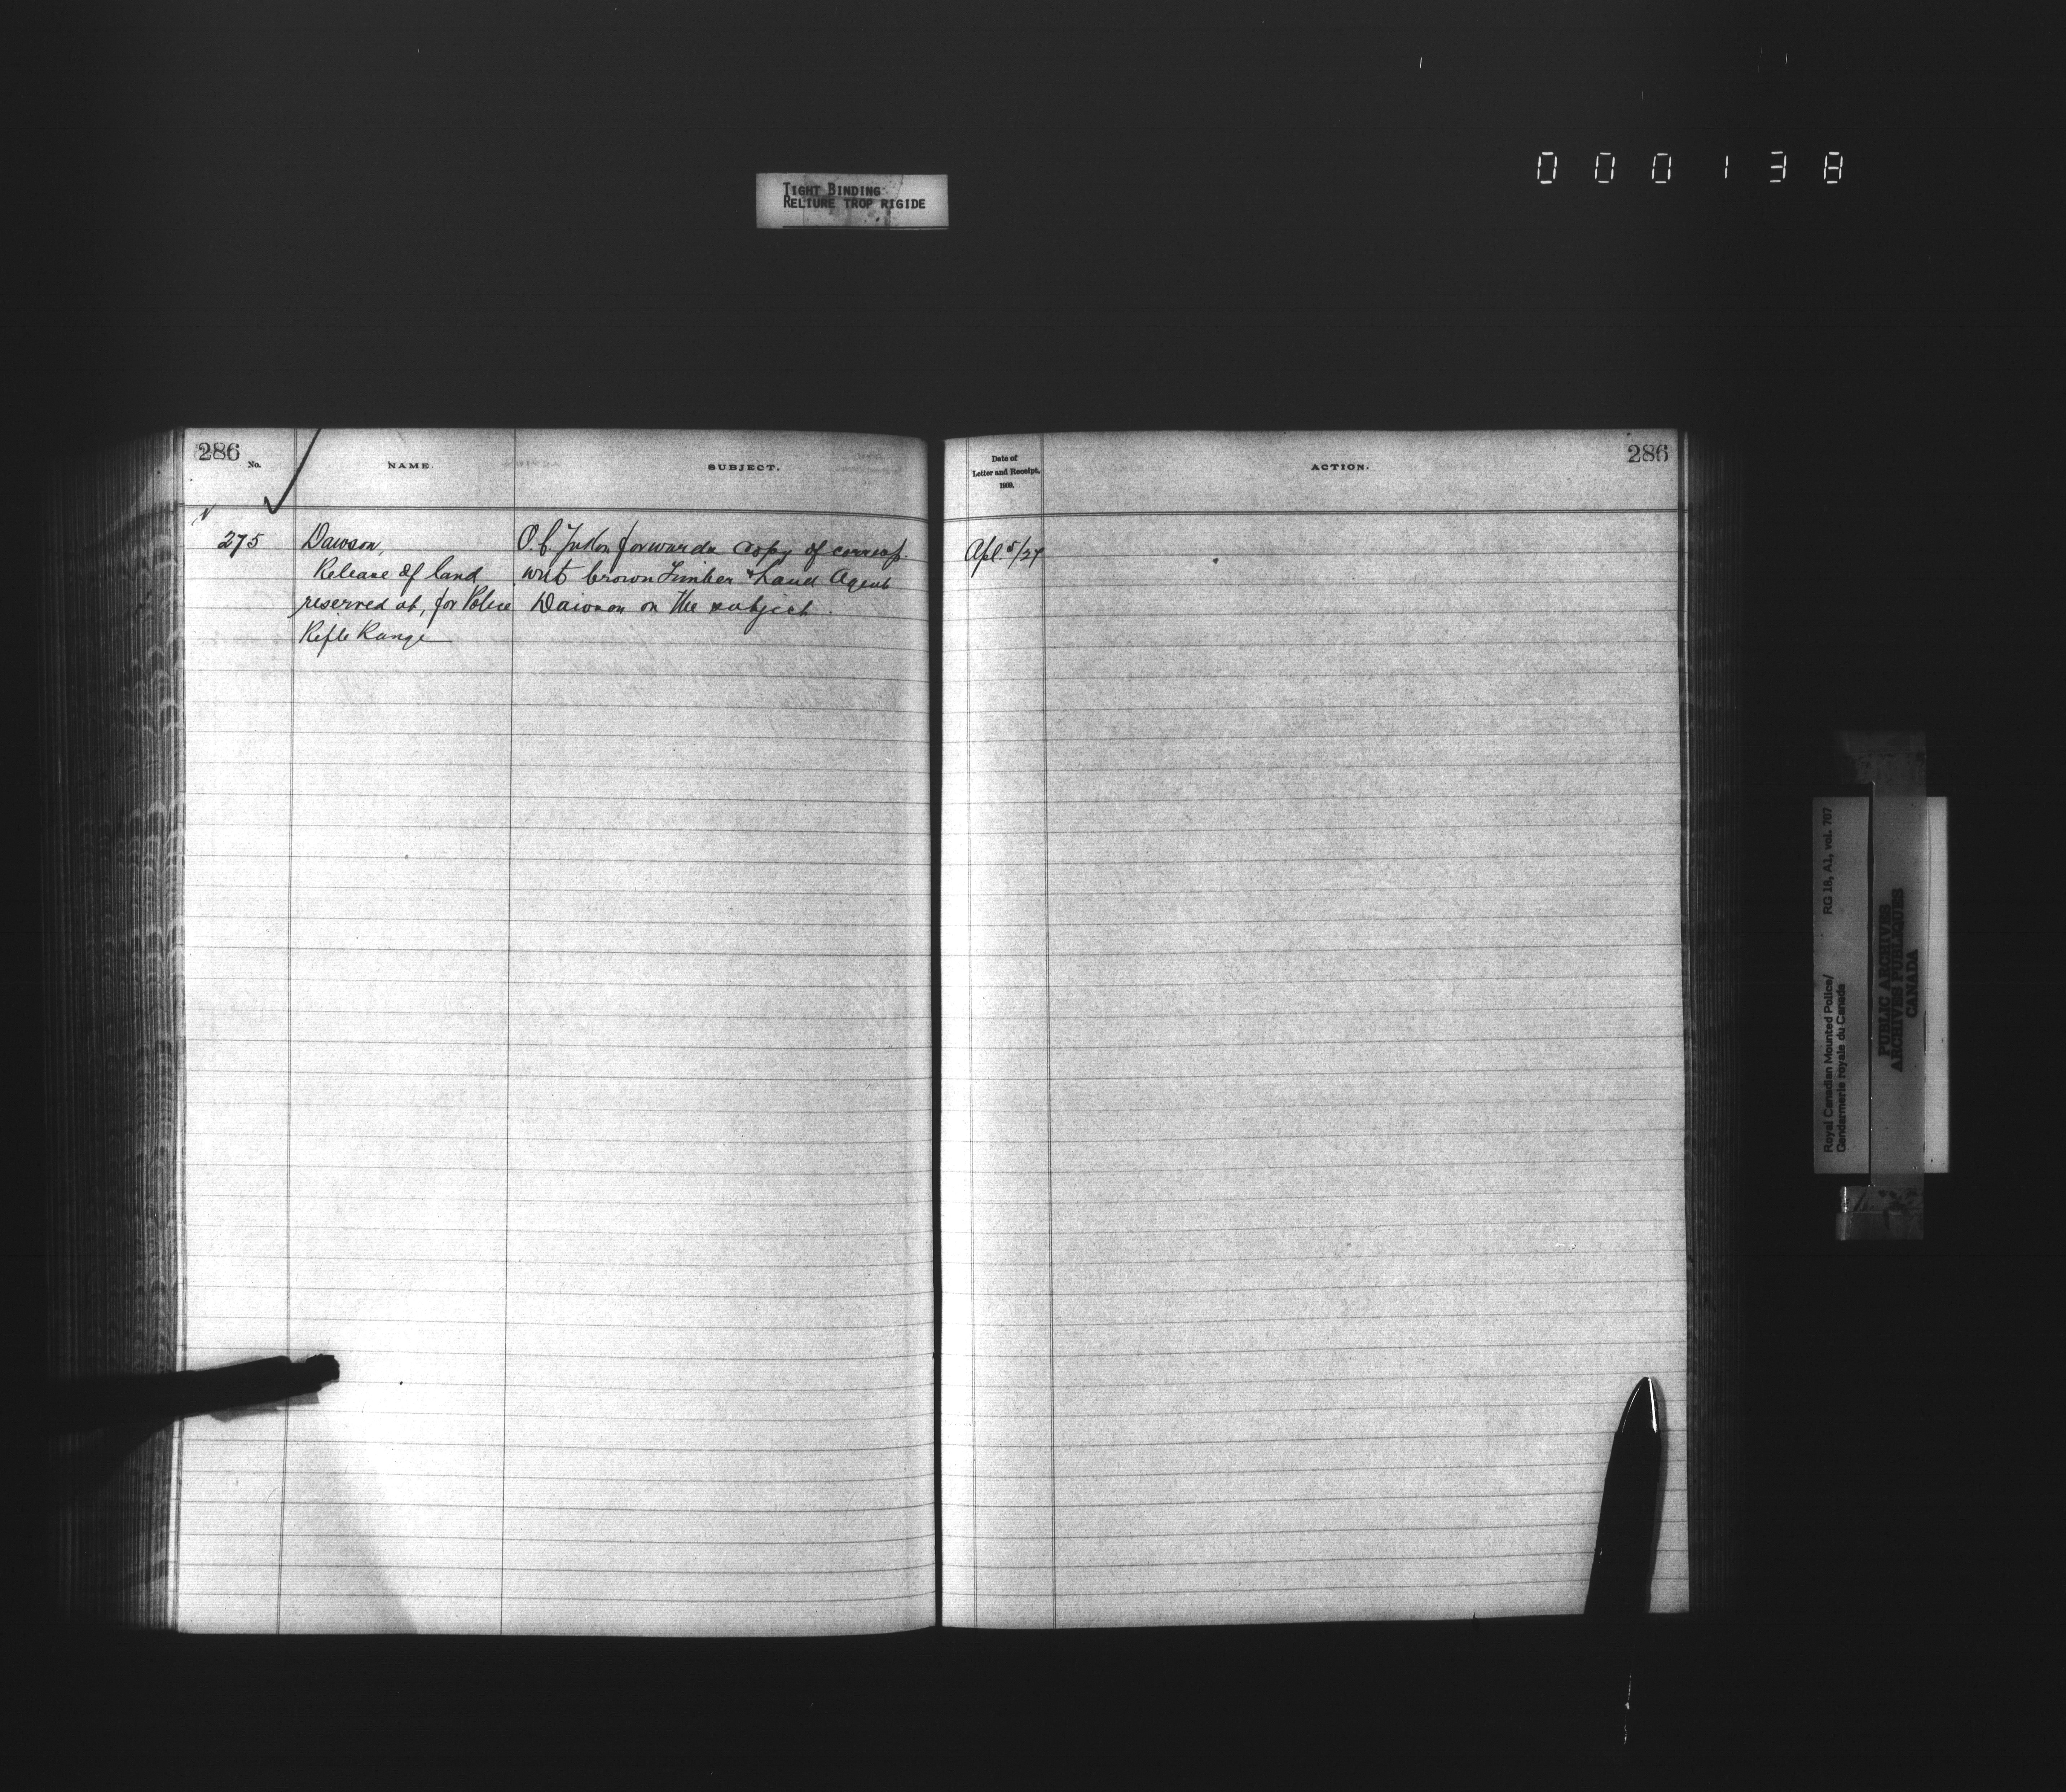 000138
TIGHT BINDING
RELIURE TROP RIGIDE
286
No.
NAME.
SUBJECT.
275
Dawson,
Release of land
reserved at, for Police
Rifle Range
O.C. Yukon forwards copy of corresp.
with Crown Timber & Land Agent
Dawson on the subject.
Date of
Letter and Receipt,
ACTION.
286
Apl. 5/27
Royal Canadian Mounted Police/
Gendarmerie royale du Canada
RG 18, A1, vol. 707
PUBLIC ARCHIVES
ARCHIVES PUBLIQUES
CANADA